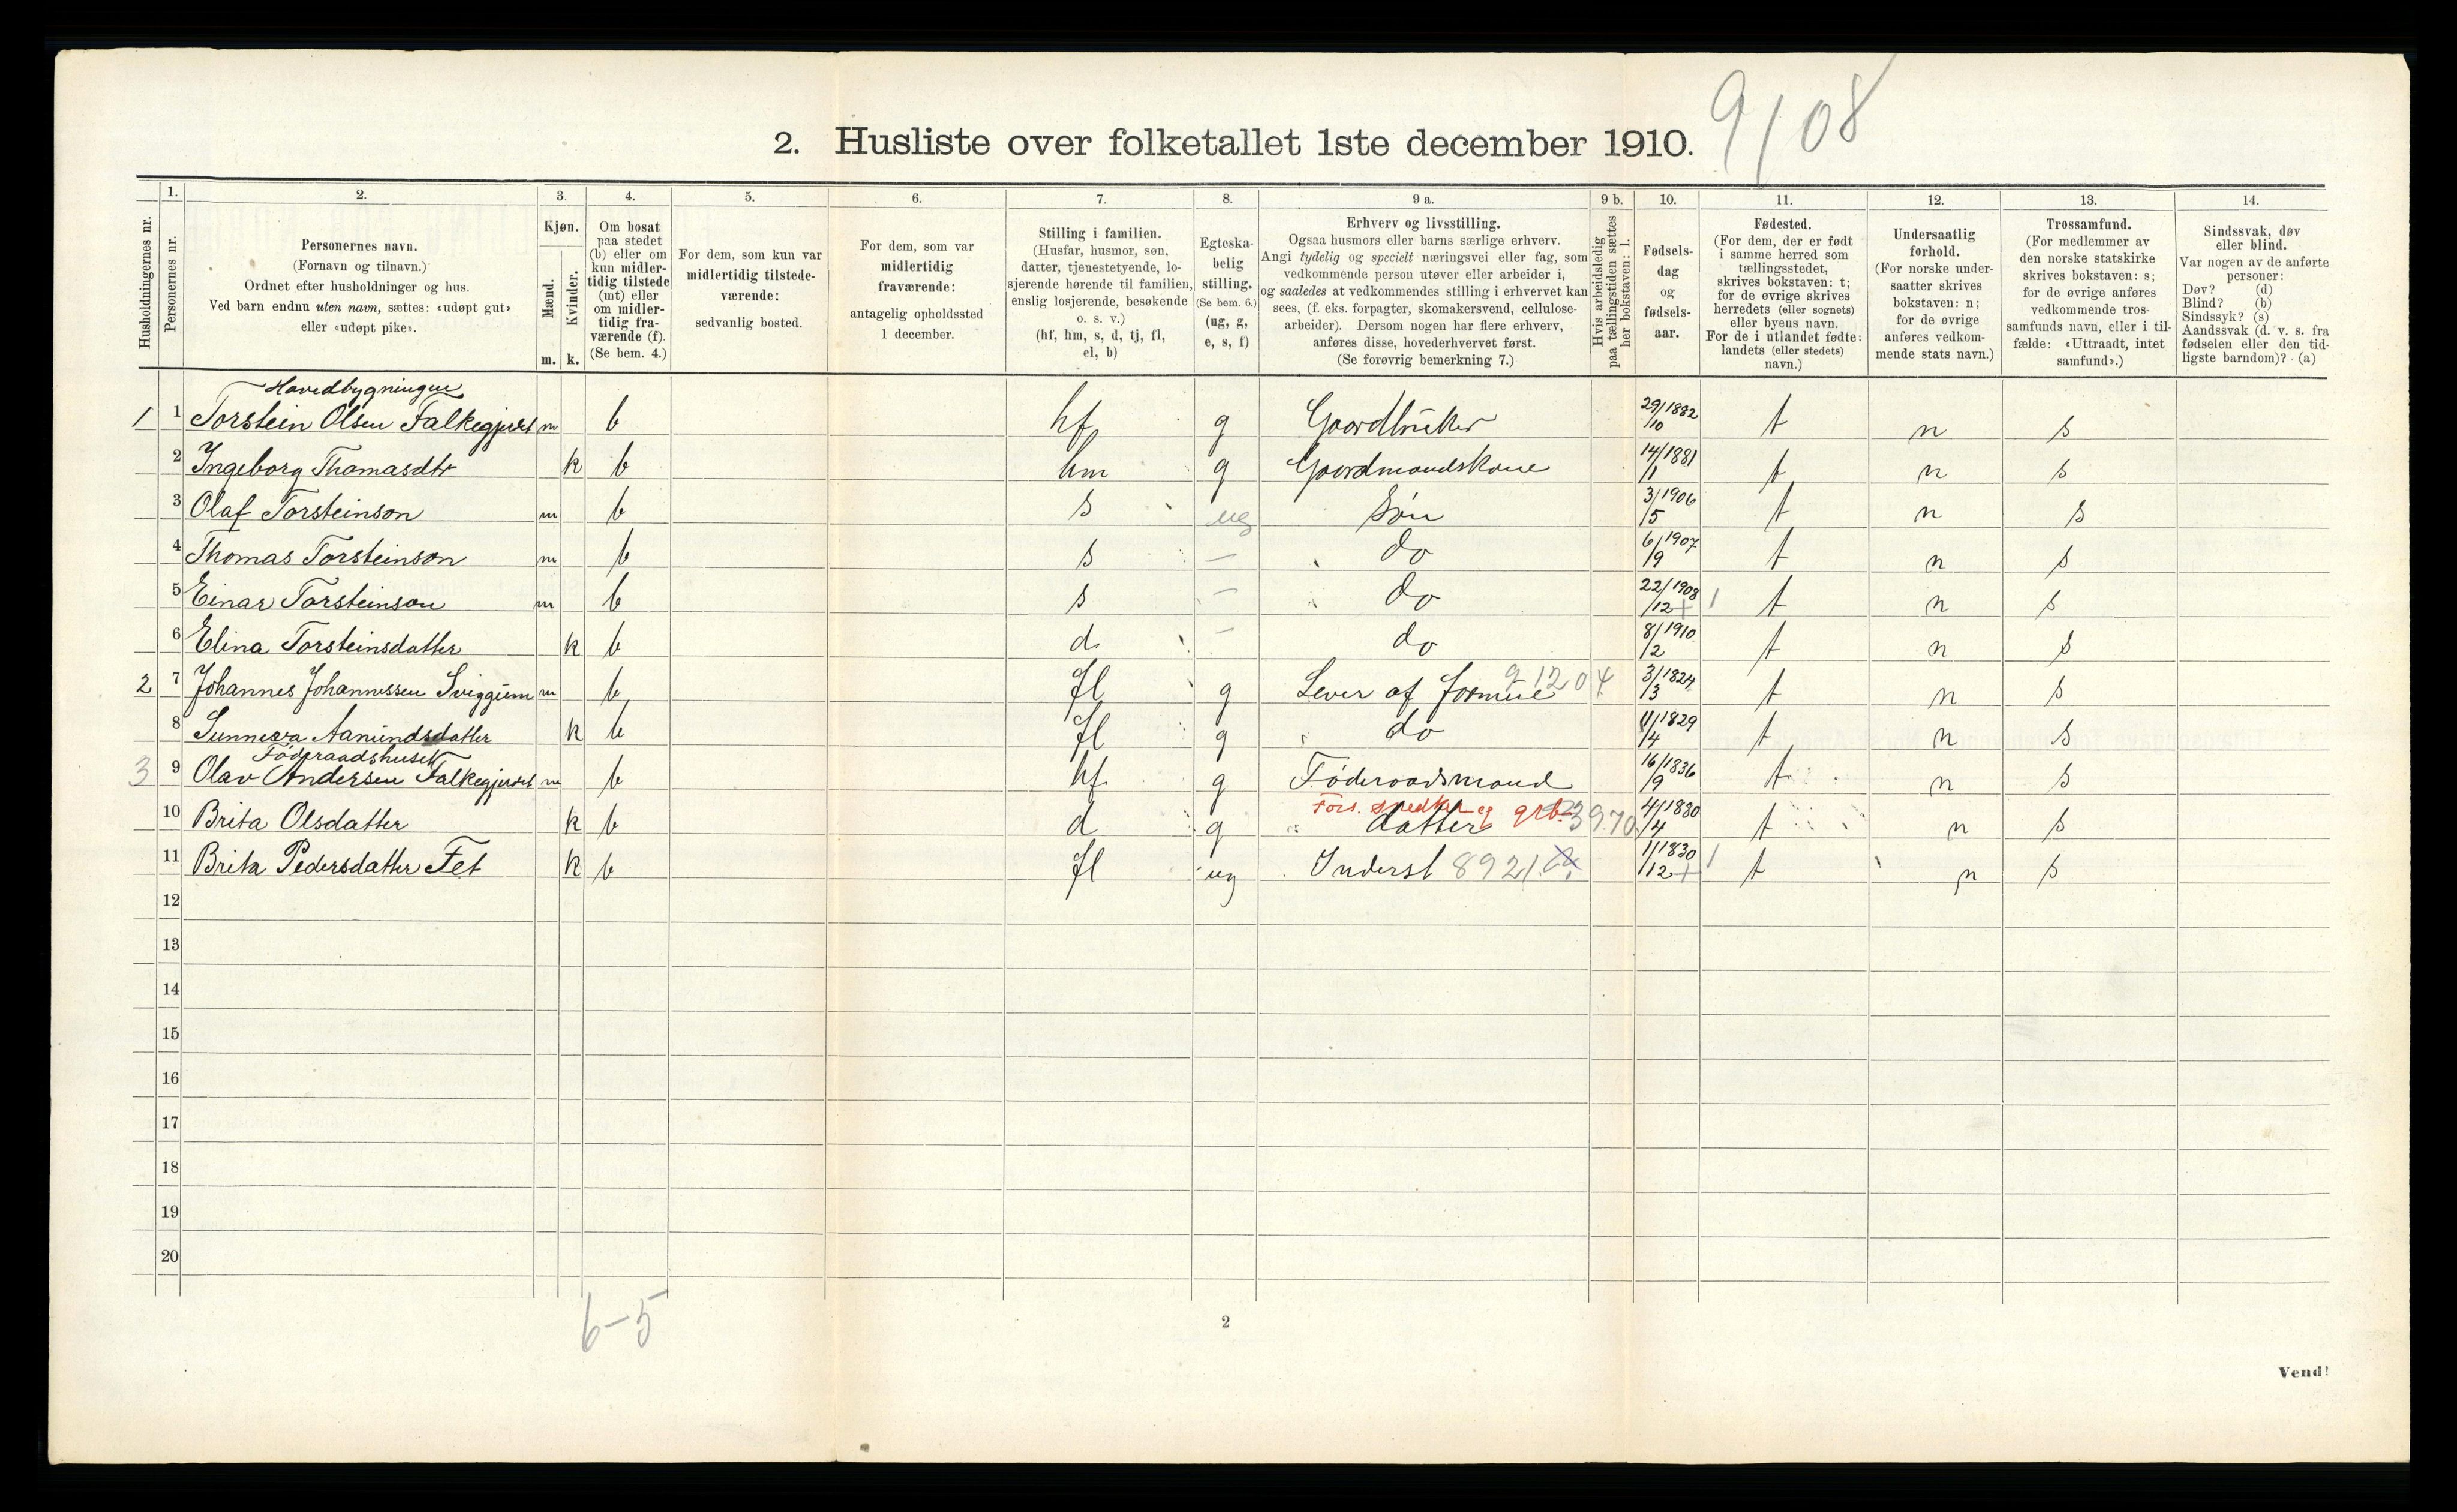 9/08
2. Husliste over folketallet 1ste december 1910.
Husholdningernes nr.
1. Personernes nr.
2. Personernes navn.
(Fornavn og tilnavn.)
Ordnet efter husholdninger og hus.
Ved barn endnu uten navn, sættes: «udøpt gut»
eller «udøpt pike».
3. Kjøn.
Mænd. m.
Kvinder. k.
4. Om bosat
paa stedet
(b) eller om
kun midler-
tidig tilstede
(mt) eller
om midler-
tidig fra-
værende (f).
(Se bem. 4.)
5. For dem, som kun var
midlertidig tilstede-
værende:
sedvanlig bosted.
6. For dem, som var
midlertidig
fraværende:
antagelig opholdssted
1 december.
7. Stilling i familien.
(Husfar, husmor, søn,
datter, tjenestetyende, lo-
sjerende hørende til familien,
enslig losjerende, besøkende
o. s. v.)
(hf, hm, s, d, tj, fl,
el, b)
8. Egteska-
belig
stilling.
(Se bem. 6.)
(ug, g,
e, s, f)
9 a. Erhverv og livsstilling.
Ogsaa husmors eller barns særlige erhverv.
Angi tydelig og specielt næringsvei eller fag, som
vedkommende person utøver eller arbeider i,
og saaledes at vedkommendes stilling i erhvervet kan
sees, (f. eks. forpagter, skomakersvend, cellulose-
arbeider). Dersom nogen har flere erhverv,
anføres disse, hovederhvervet først.
(Se forøvrig bemerkning 7.)
9 b. Hvis arbeidsledig
paa tællingstiden sættes
her bokstaven: l.
10. Fødsels-
dag
og
fødsels-
aar.
11. Fødested.
(For dem, der er født
i samme herred som
tællingsstedet,
skrives bokstaven: t;
for de øvrige skrives
herredets (eller sognets)
eller byens navn.
For de i utlandet fødte:
landets (eller stedets)
navn.)
12. Undersaatlig
forhold.
(For norske under-
saatter skrives
bokstaven: n;
for de øvrige
anføres vedkom-
mende stats navn.)
13. Trossamfund.
(For medlemmer av
den norske statskirke
skrives bokstaven: s;
for de øvrige anføres
vedkommende tros-
samfunds navn, eller i til-
fælde: «Uttraadt, intet
samfund».)
14. Sindssvak, døv
eller blind.
Var nogen av de anførte
personer:
Døv? (d)
Blind? (b)
Sindssyk? (s)
Aandssvak (d. v. s. fra
fødselen eller den tid-
ligste barndom)? (a)
Hovedbygningen
1 1 Torstein Olsen Falkegjerdet m b hf g Gaardbruker 29/10 1882 t n s
2 Ingeborg Thomasdtr k b hm g Gaardmandskone 14/1 1881 t n s
3 Olaf Torsteinson m b s ug Søn 3/5 1906 t n s
4 Thomas Torsteinson m b s — do 6/9 1907 t n s
5 Einar Torsteinson m b s — do 22/12 1908 + 1 t n s
6 Elina Torsteinsdatter k b d — do 8/2 1910 t n s
2 7 Johannes Johannessen Sviggum m b fl g Lever af formue 91204 3/3 1824 t n s
8 Sunneva Aamundsdatter k b fl g do 11/4 1829 t n s
Føderaadshuset
3 9 Olav Andersen Falkegjerdet m b hf g Føderaadsmand 16/9 1836 t n s
10 Brita Olsdatter k b d g datter 3970 4/4 1830 t n s
11 Brita Pedersdatter Fet k b fl ug Inderst 8921 1/12 1830 + 1 t n s
12
13
14
15
16
17
18
19
20
6-5
2
Vend!